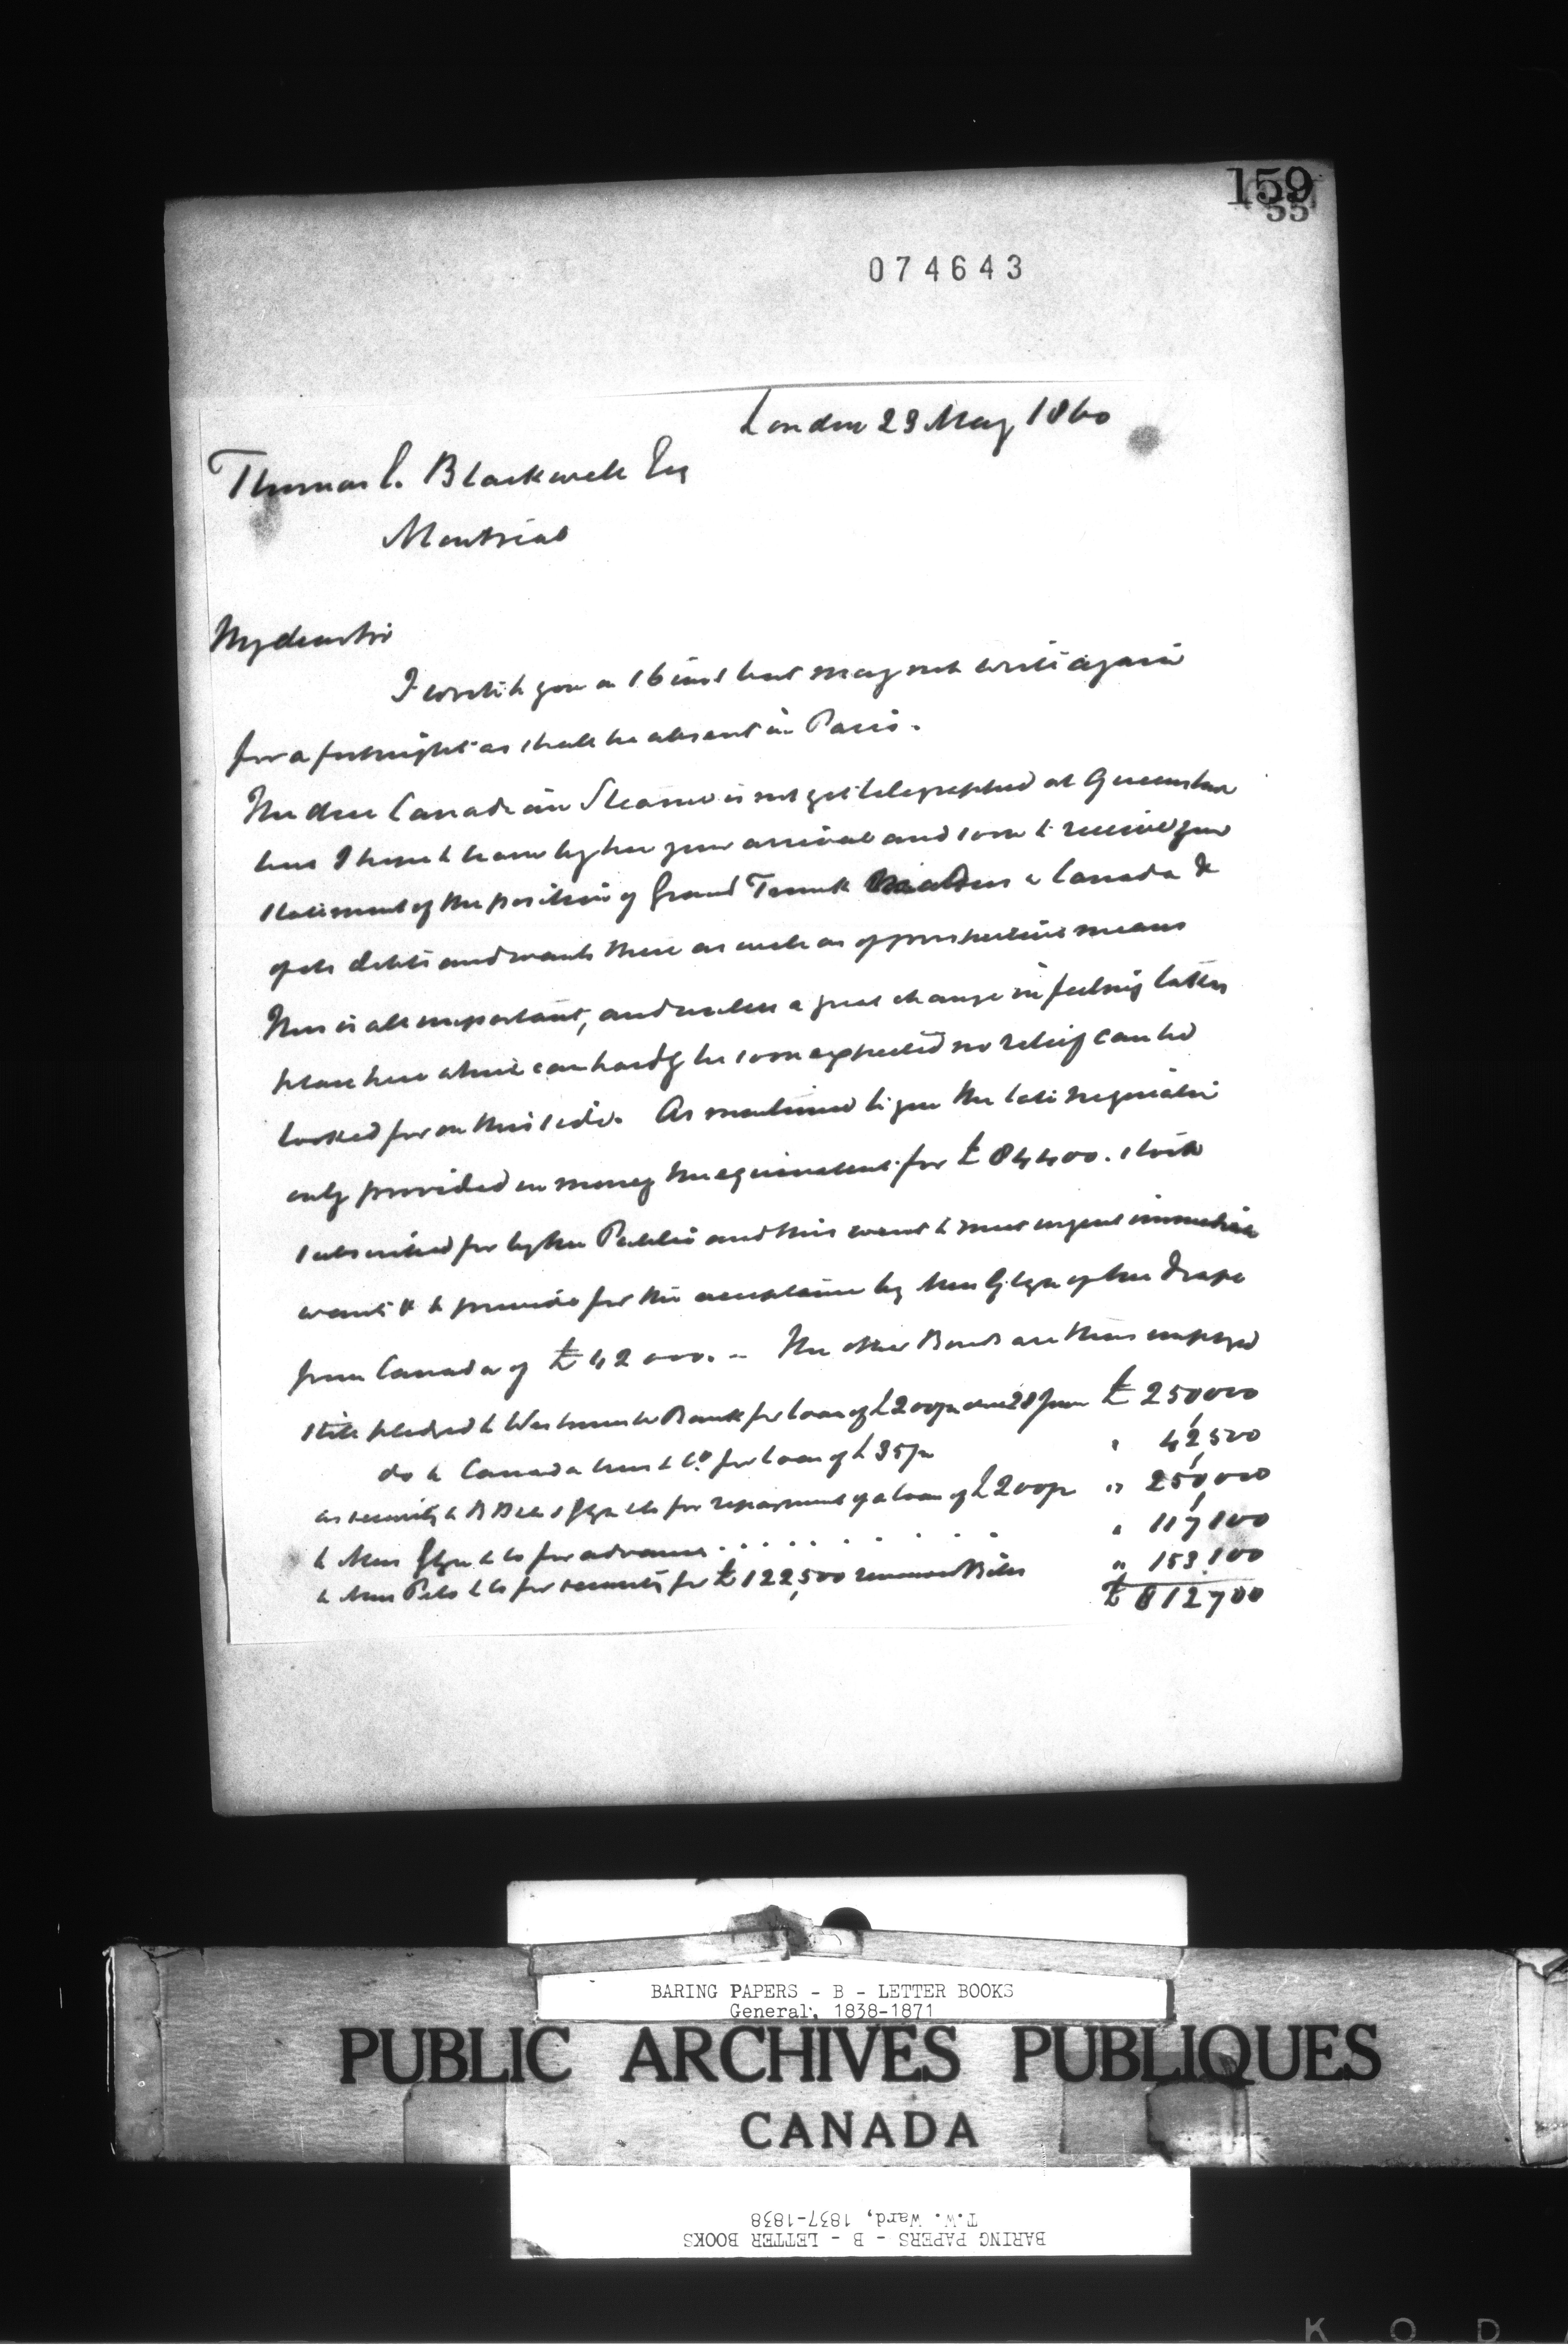 159
55
074643
London 23 May 1860
Thomas E. Blackwell Esq
Montreal
My dear Sir
I wrote to you on 16 inst but may not write again
for a fortnight as shall be absent in Paris.
The due Canadian Steamer is not yet telegraphed at Queenstown
but I hope to learn by her your arrival and soon to receive your
statement of the position of Grand Trunk in Canada &
of its debts and wants there as well as of prospective means
This is all important, and unless a great change in feeling takes
place here which can hardly be soon expected no relief can be
looked for on this side. As mentioned to you the late negociation
only provided in money the equivalent for £84400. stock
subscribed for by the Public and this went to meet urgent immediate
wants & to provide for the acceptance by Mess Glyn of the Drafts
from Canada of £42000. - The other Bonds are thus employed
still pledged to Westminster Bank for loan of £200/m due 28 June £250000
do to Canada Comp for loan of £35/m " 42,500
as security to B B & Co & Glyn & Co for repayment of a loan of £200/m " 250,000
to Mess Glyn & Co for advances . . . . . . . " 117,100
to Mess Peto & Co for security for £122,500 renewed Bills " 153,100
£812700
BARING PAPERS - B - LETTER BOOKS
General, 1838-1871
PUBLIC ARCHIVES PUBLIQUES
CANADA
BARING PAPERS - B - LETTER BOOKS
T.W. Ward, 1837-1838
K O D